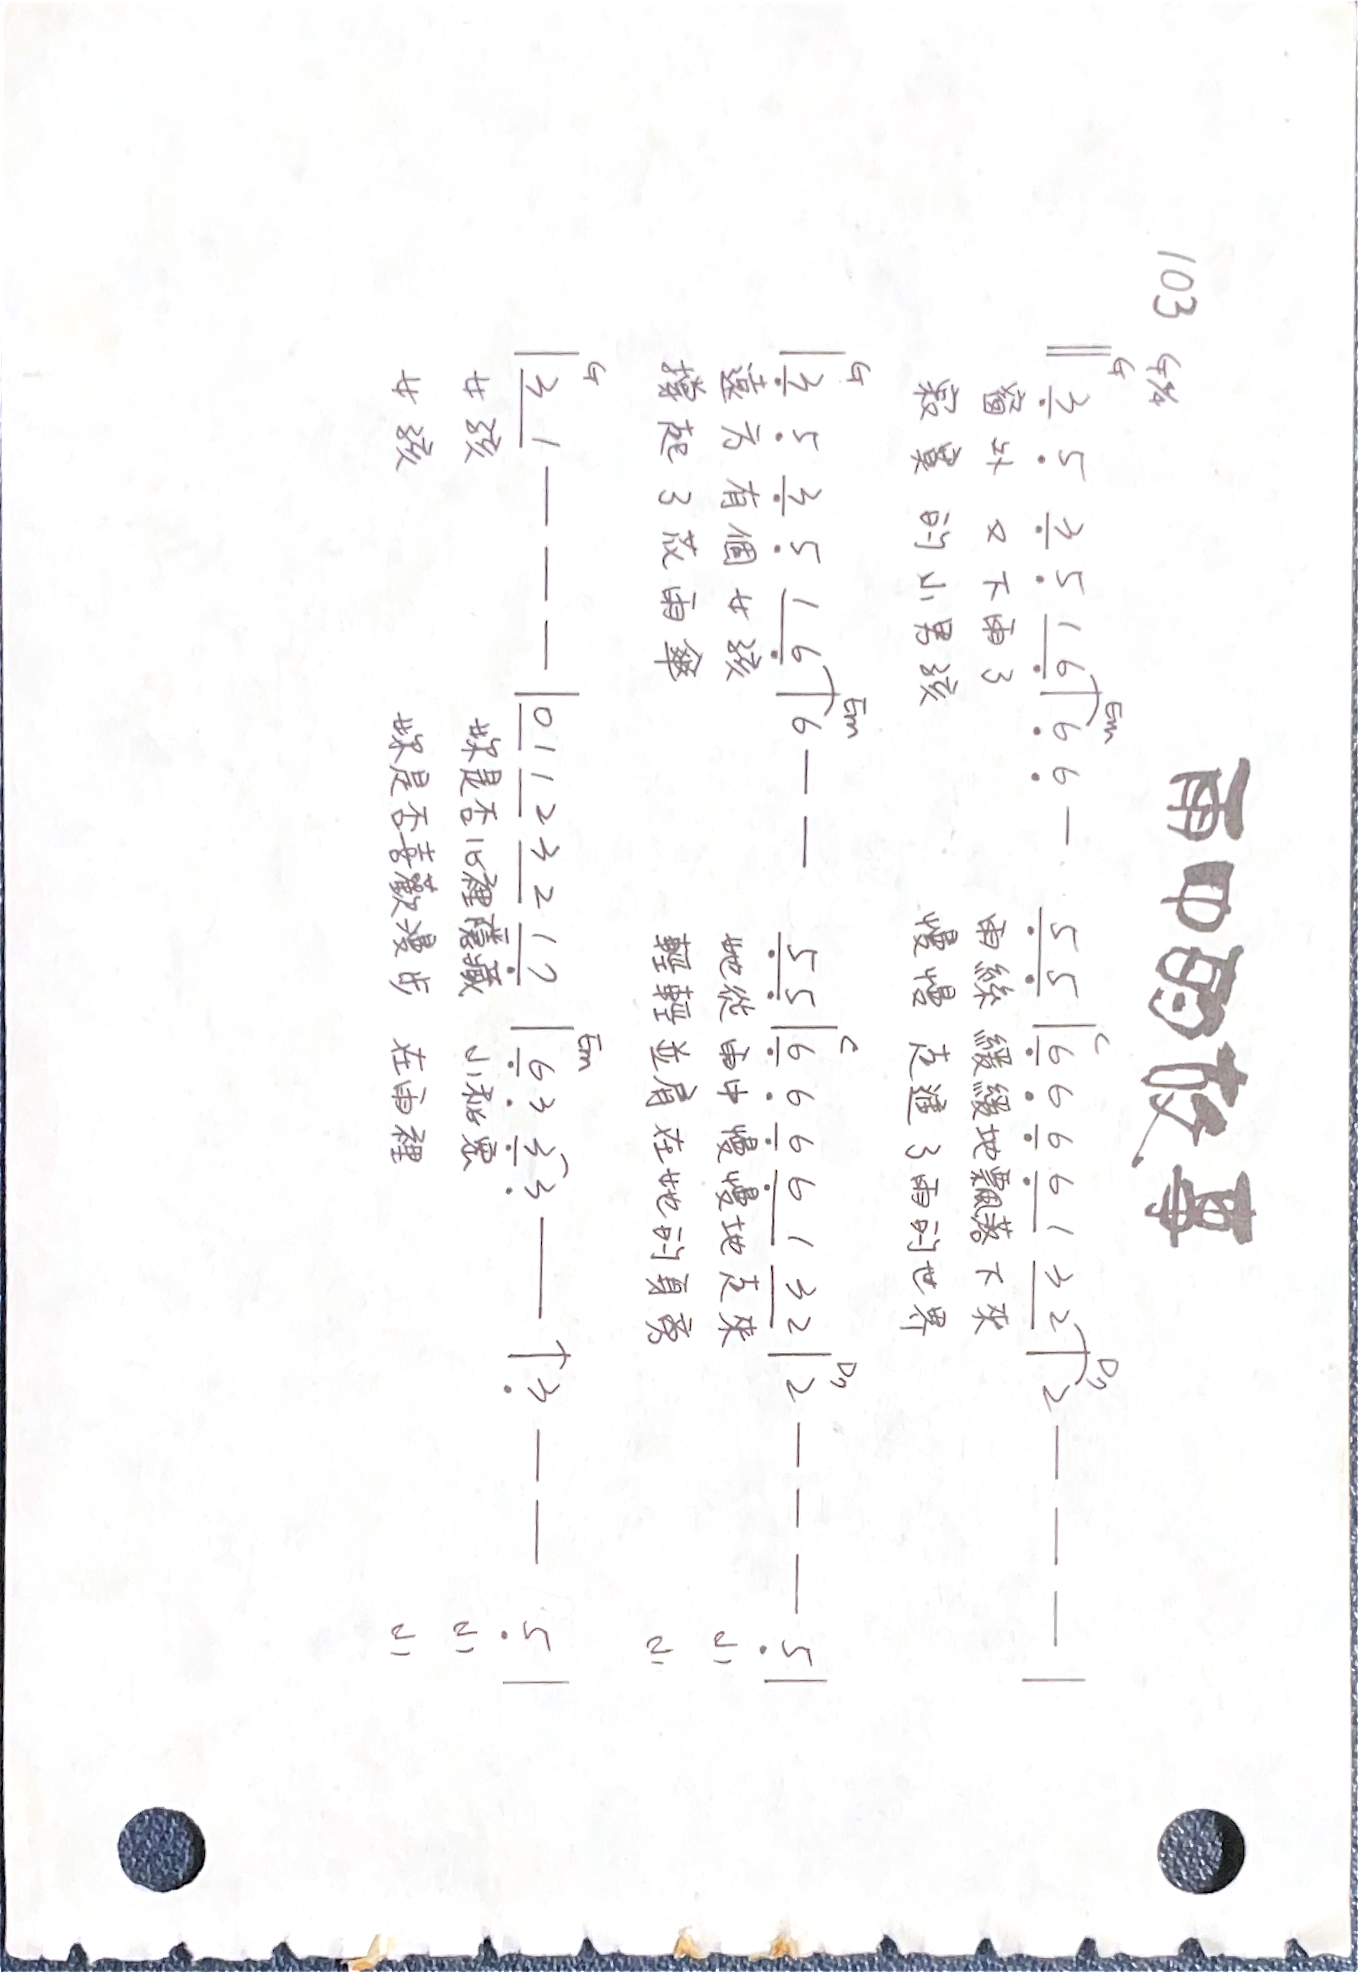 雨中的故事
103 G 4/4
G Em C D7
‖ 3 5 3 5 1 6 | 6 6 — 5 5 | 6 6 6 6 1 3 2 | 2 — — — |
窗外 又下雨了 雨絲緩緩地飄落下來
寂寞 的小男孩 慢慢 走進了雨的世界
G Em C D7
| 3 5 3 5 1 6 | 6 — — 5 5 | 6 6 6 6 1 3 2 | 2 — — — 5 |
遠方有個女孩 她從雨中慢慢地走來 小
撐起了花雨傘 輕輕並肩在她的身旁 小
G Em
| 3 1 — — — | 0 1 1 2 3 2 1 7 | 6 3 3 3 — | 3 — — 5 |
女孩 妳是否心裡隱藏 小秘密 小
女孩 妳是否喜歡漫步 在雨裡 小